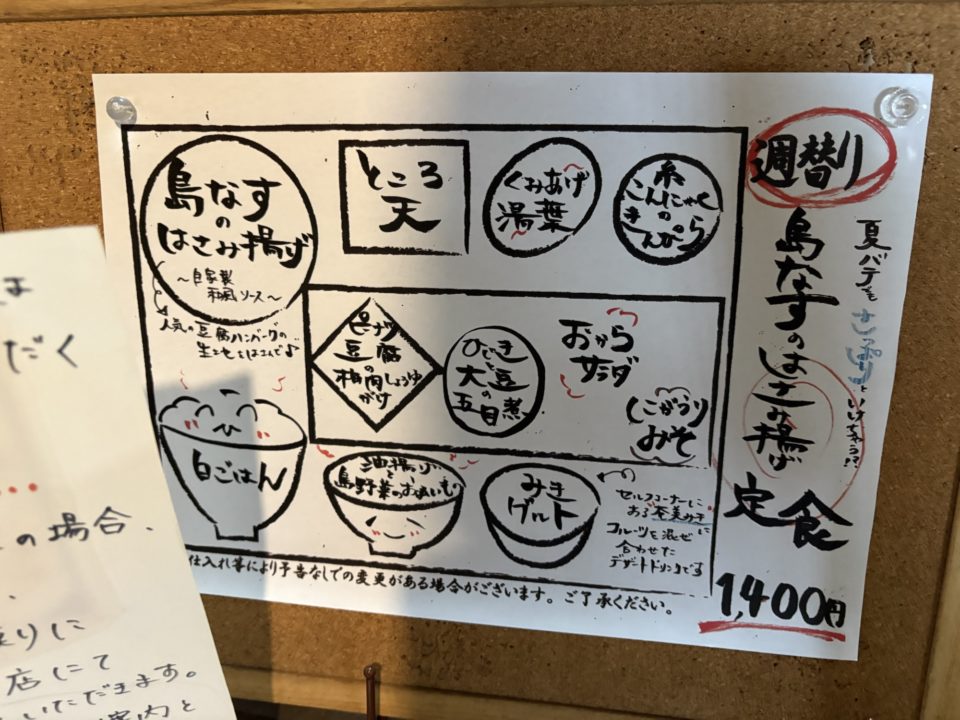 週替り
夏バテもさっぱりといけちゃう!?
島なすのはさみ揚げ
定食
1,400円
島なす
の
はさみ揚げ
~自家製
和風ソース~
人気の豆腐ハンバーグの
ところ
天
くみあげ
湯葉
糸
こんにゃく
の
きんぴら
ピーナツ
豆腐
の
梅肉しょうゆ
がけ
ひじき
と
大豆
の
五目煮
おから
サラダ
みそ
白ごはん
油揚げ
と
島野菜のお吸いもの
みき
グルト
セルフコーナーに
ある奄美みき
に
フルーツを混ぜ
合わせた
デザートドリンクです
仕入れ等により予告なしでの変更がある場合がございます。ご了承ください。
は
だく
の場合、
店にて
いただきます。